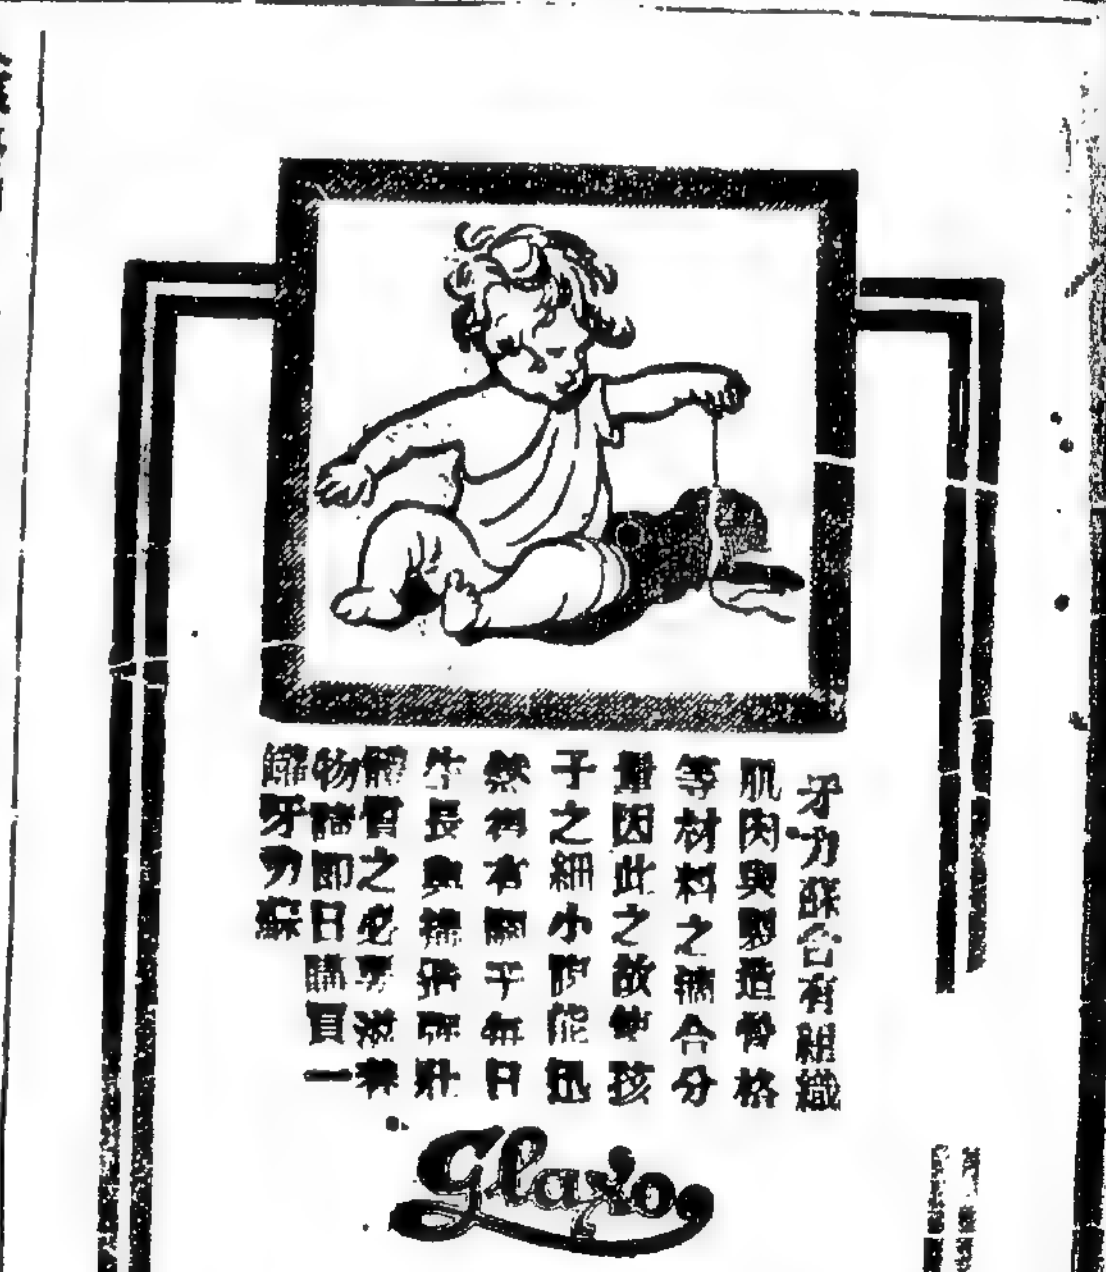 牙力蘇含有組織
肌肉與製造骨格
等材料之合分
量因此之故使孩
子之細小能迅
然有關于每日
生長與壯
體質之必要滋養
物請即日購買一
罐牙力蘇
Glaxo